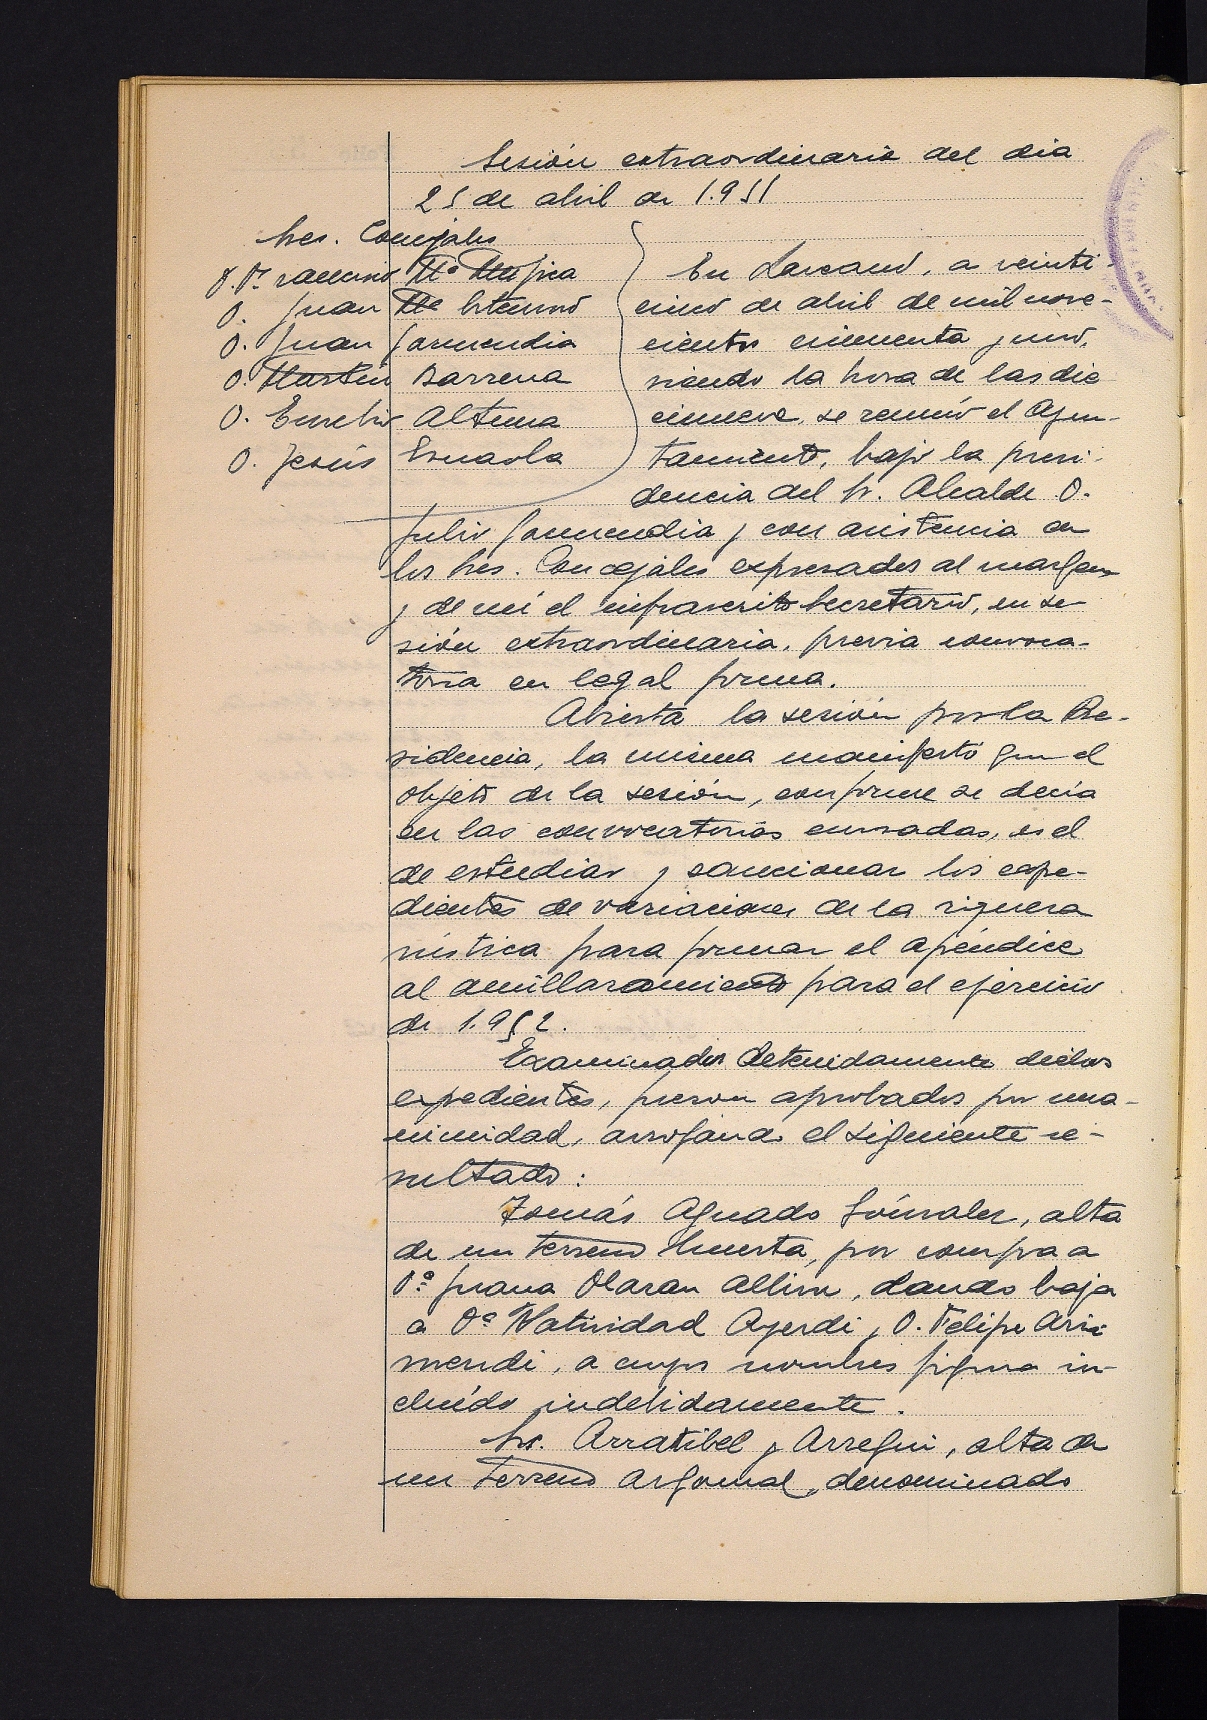 Sesión extraordinaria del dia
25 de abril de 1.951
Sres. Concejales
D. Fº. Mª Mujica
D. Juan Mª
D. Juan Garmendia
D. Martín Barrena
D. Eusebio Altuna
D. Jesús Esnaola
En Lazcano, a veinti-
cinco de abril de mil nove-
cientos cincuenta y uno,
siendo la hora de las die
cinueve, se reunió el Ayun-
tamiento, bajo la presi-
dencia del Sr. Alcalde D.
Julio Garmendia y con asistencia de
los Sres. Concejales expresados al margen
y de mí el infrascrito Secretario, en se-
sión extraordinaria, previa convoca-
toria en legal forma.
Abierta la sesión por la Pre-
sidencia, la misma manifestó que el
objeto de la sesión, conforme se decía
en las convocatorias cursadas, es el
de estudiar y sancionar los expe-
dientes de variaciones de la riqueza
rústica para formar el apéndice
al amillaramiento para el ejercicio
de 1.952.
Examinados detenidamente dichos
expedientes, fueron aprobados por una-
nimidad, arrojando el siguiente re-
sultado:
Tomás Aguado Gónzalez, alta
de un terreno Huerta, por compra a
Dª Juana Olaran, dando baja
a Dª Natividad Ayerdi y D. Felipe Ariz
mendi, a cuyos nombres figura in-
cluído indebidamente.
Sres. Arratibel y Arregui, alta de
un terreno argomal, denominado